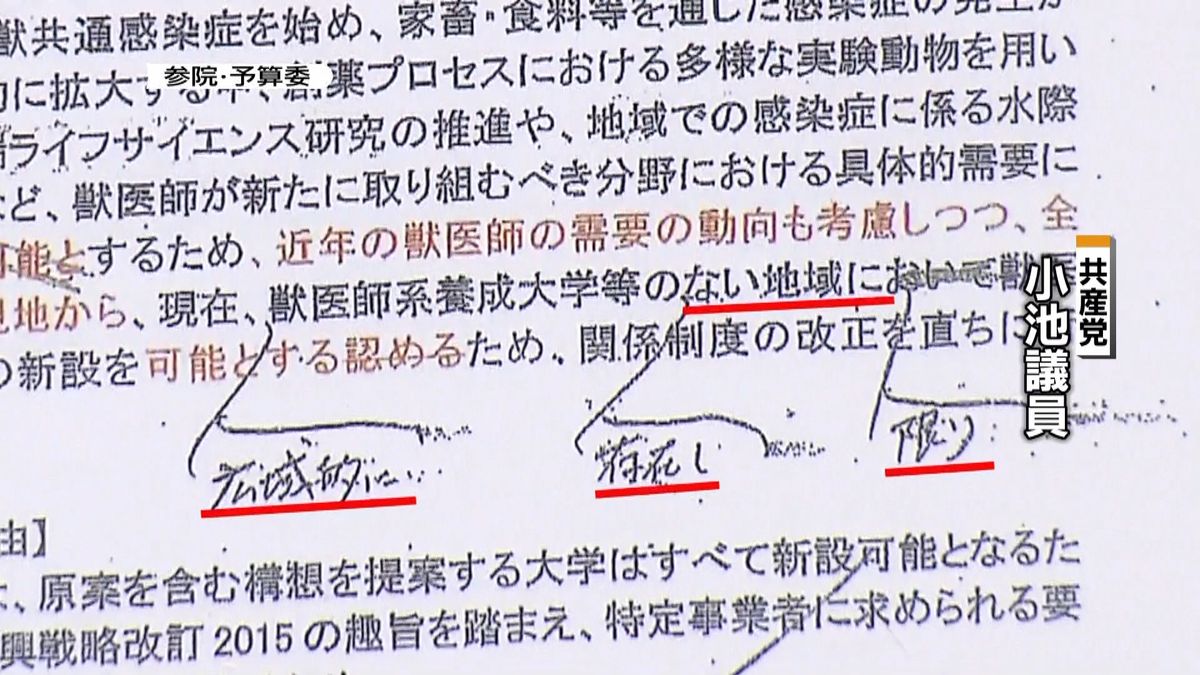 獣共通感染症を始め、家畜・食料等を通じた感染症の発生が
参院・予算委
的に拡大する中、創薬プロセスにおける多様な実験動物を用い
ライフサイエンス研究の推進や、地域での感染症に係る水際
など、獣医師が新たに取り組むべき分野における具体的需要に
可能とするため、近年の獣医師の需要の動向も考慮しつつ、全
見地から、現在、獣医師系養成大学等のない地域において獣医
の新設を可能とする認めるため、関係制度の改正を直ちに
広域的に
存在し
限り
共産党
小池議員
由】
、原案を含む構想を提案する大学はすべて新設可能となるた
興戦略改訂2015の趣旨を踏まえ、特定事業者に求められる要